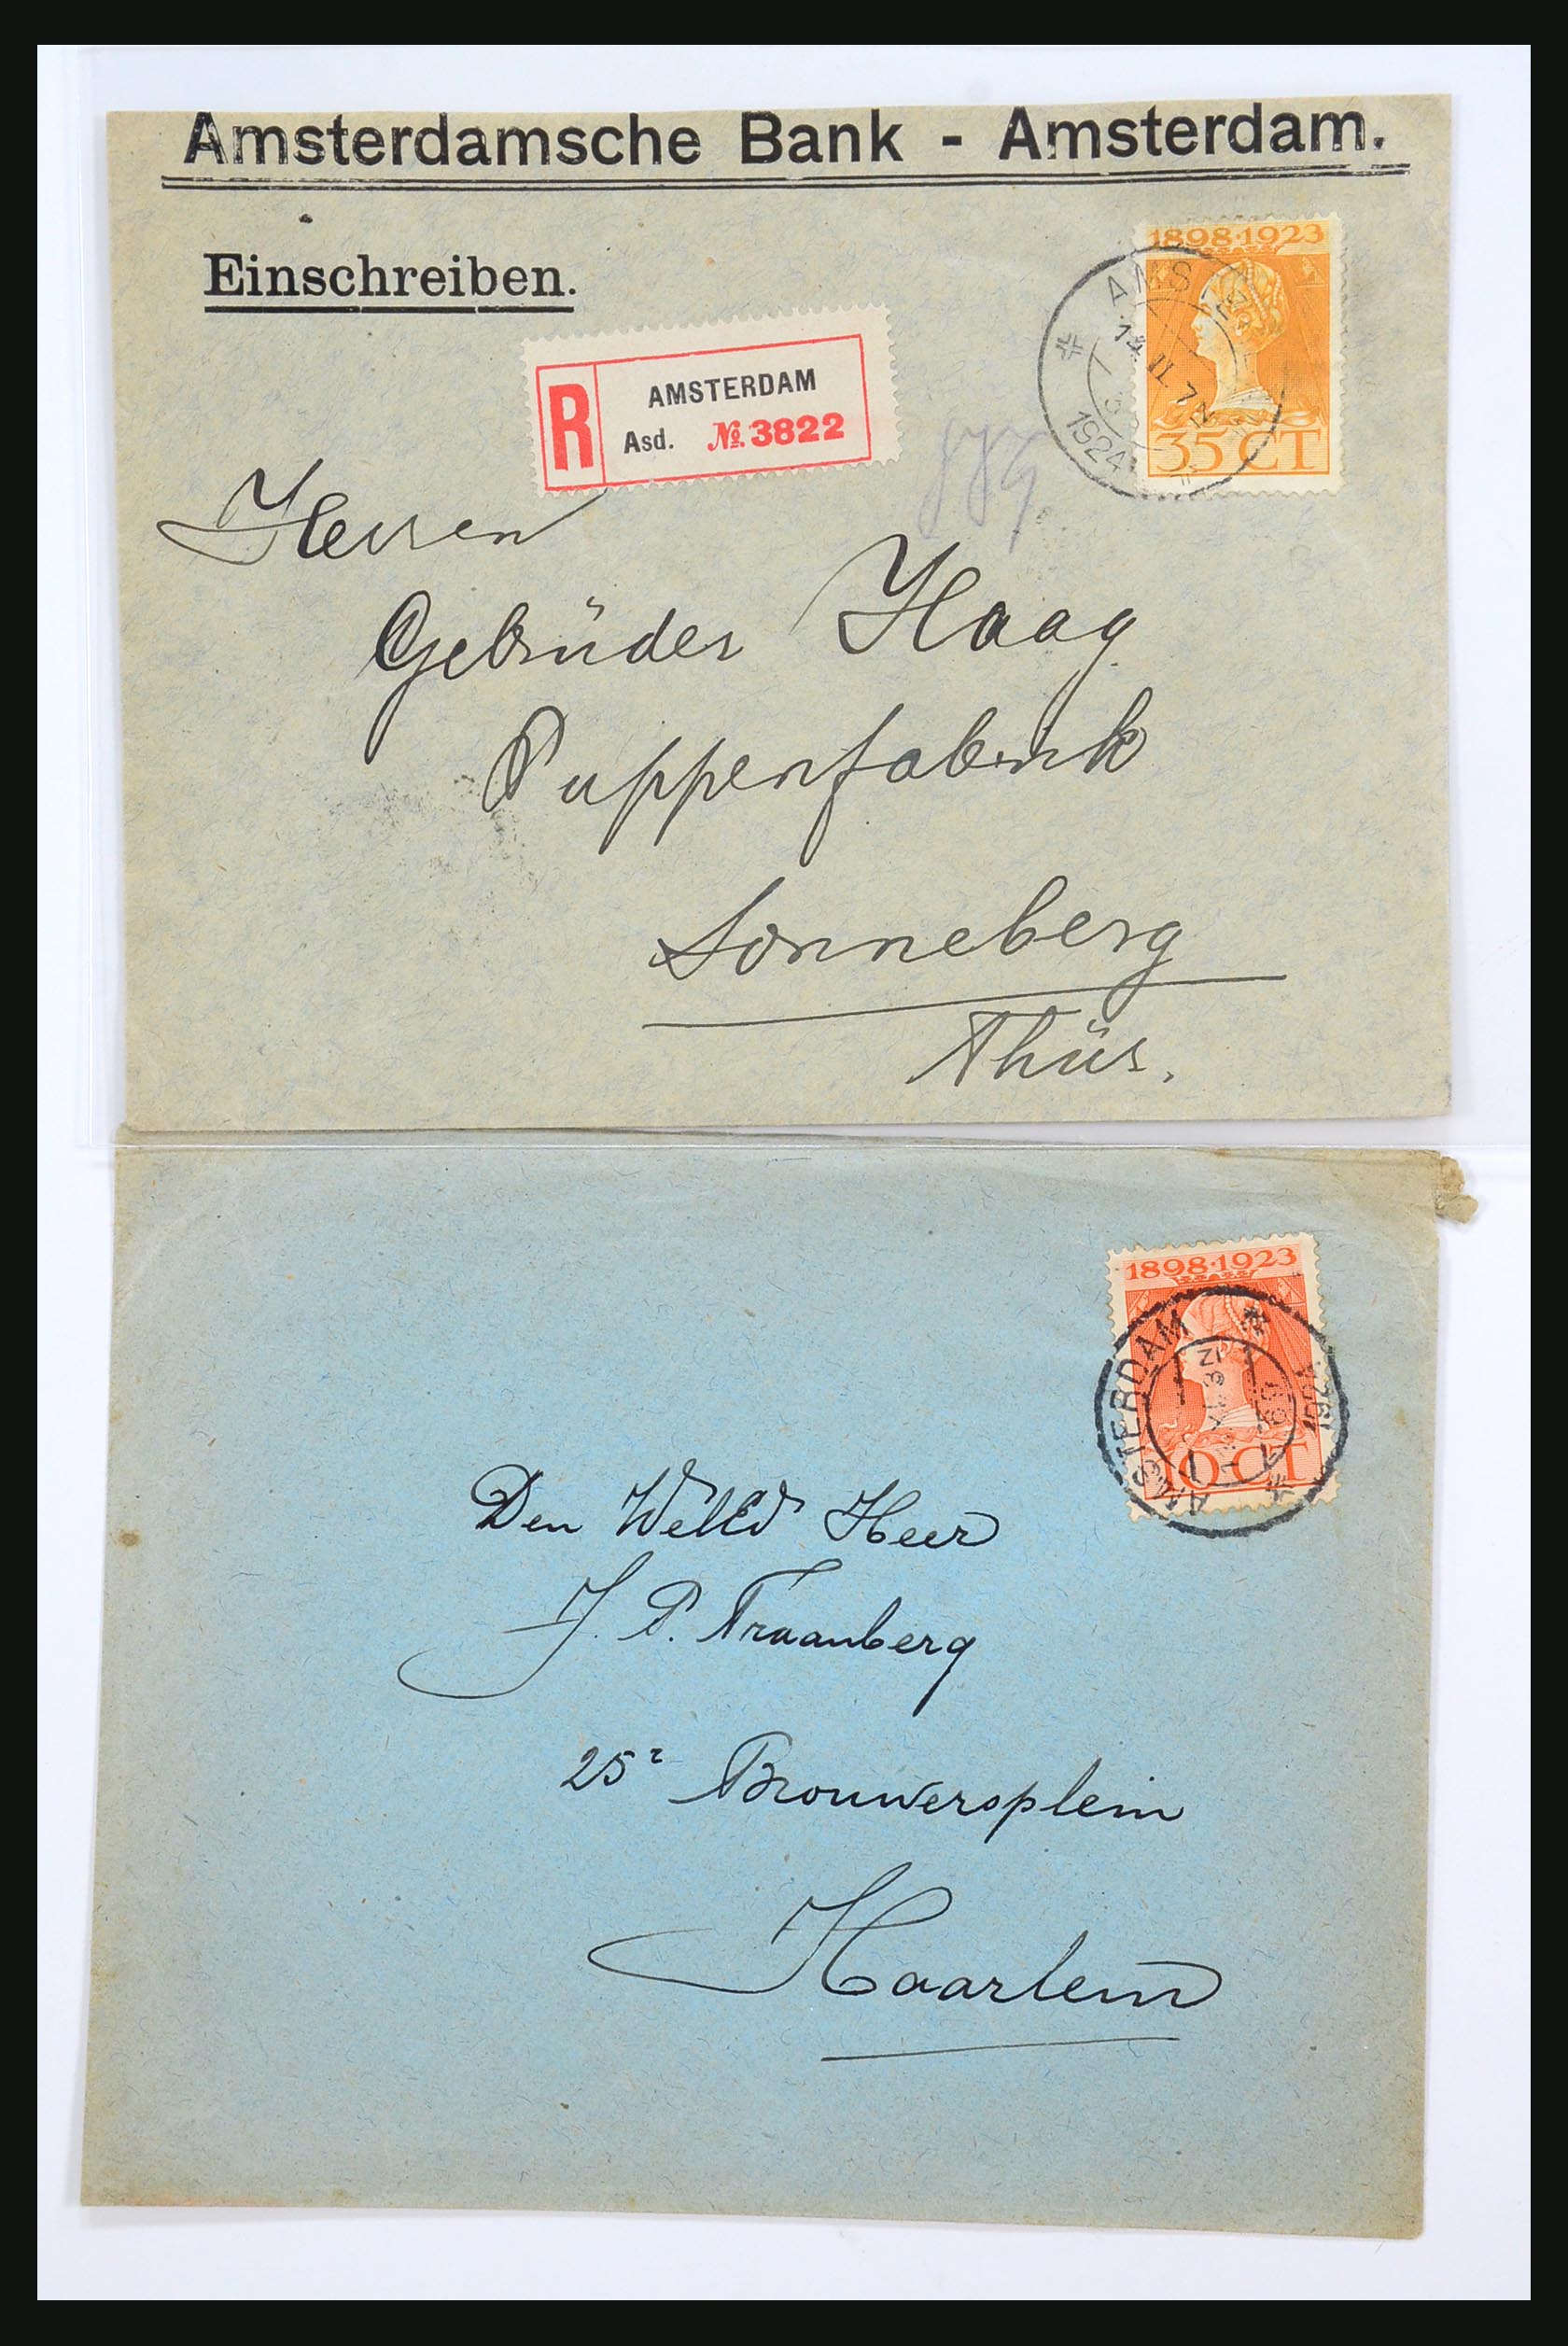 Amsterdamsche Bank - Amsterdam.
Einschreiben.
1898·1923
35 CT
AMS
14 II. 7
1924
R
AMSTERDAM
Asd. № 3822
Herren
Gebrüder Haag
Puppenfabrik
Sonneberg
Thür.
1898·1923
10 CT
AMSTERDAM
1924
Den WelEd Heer
J. P. Traanberg
25² Brouwersplein
Haarlem